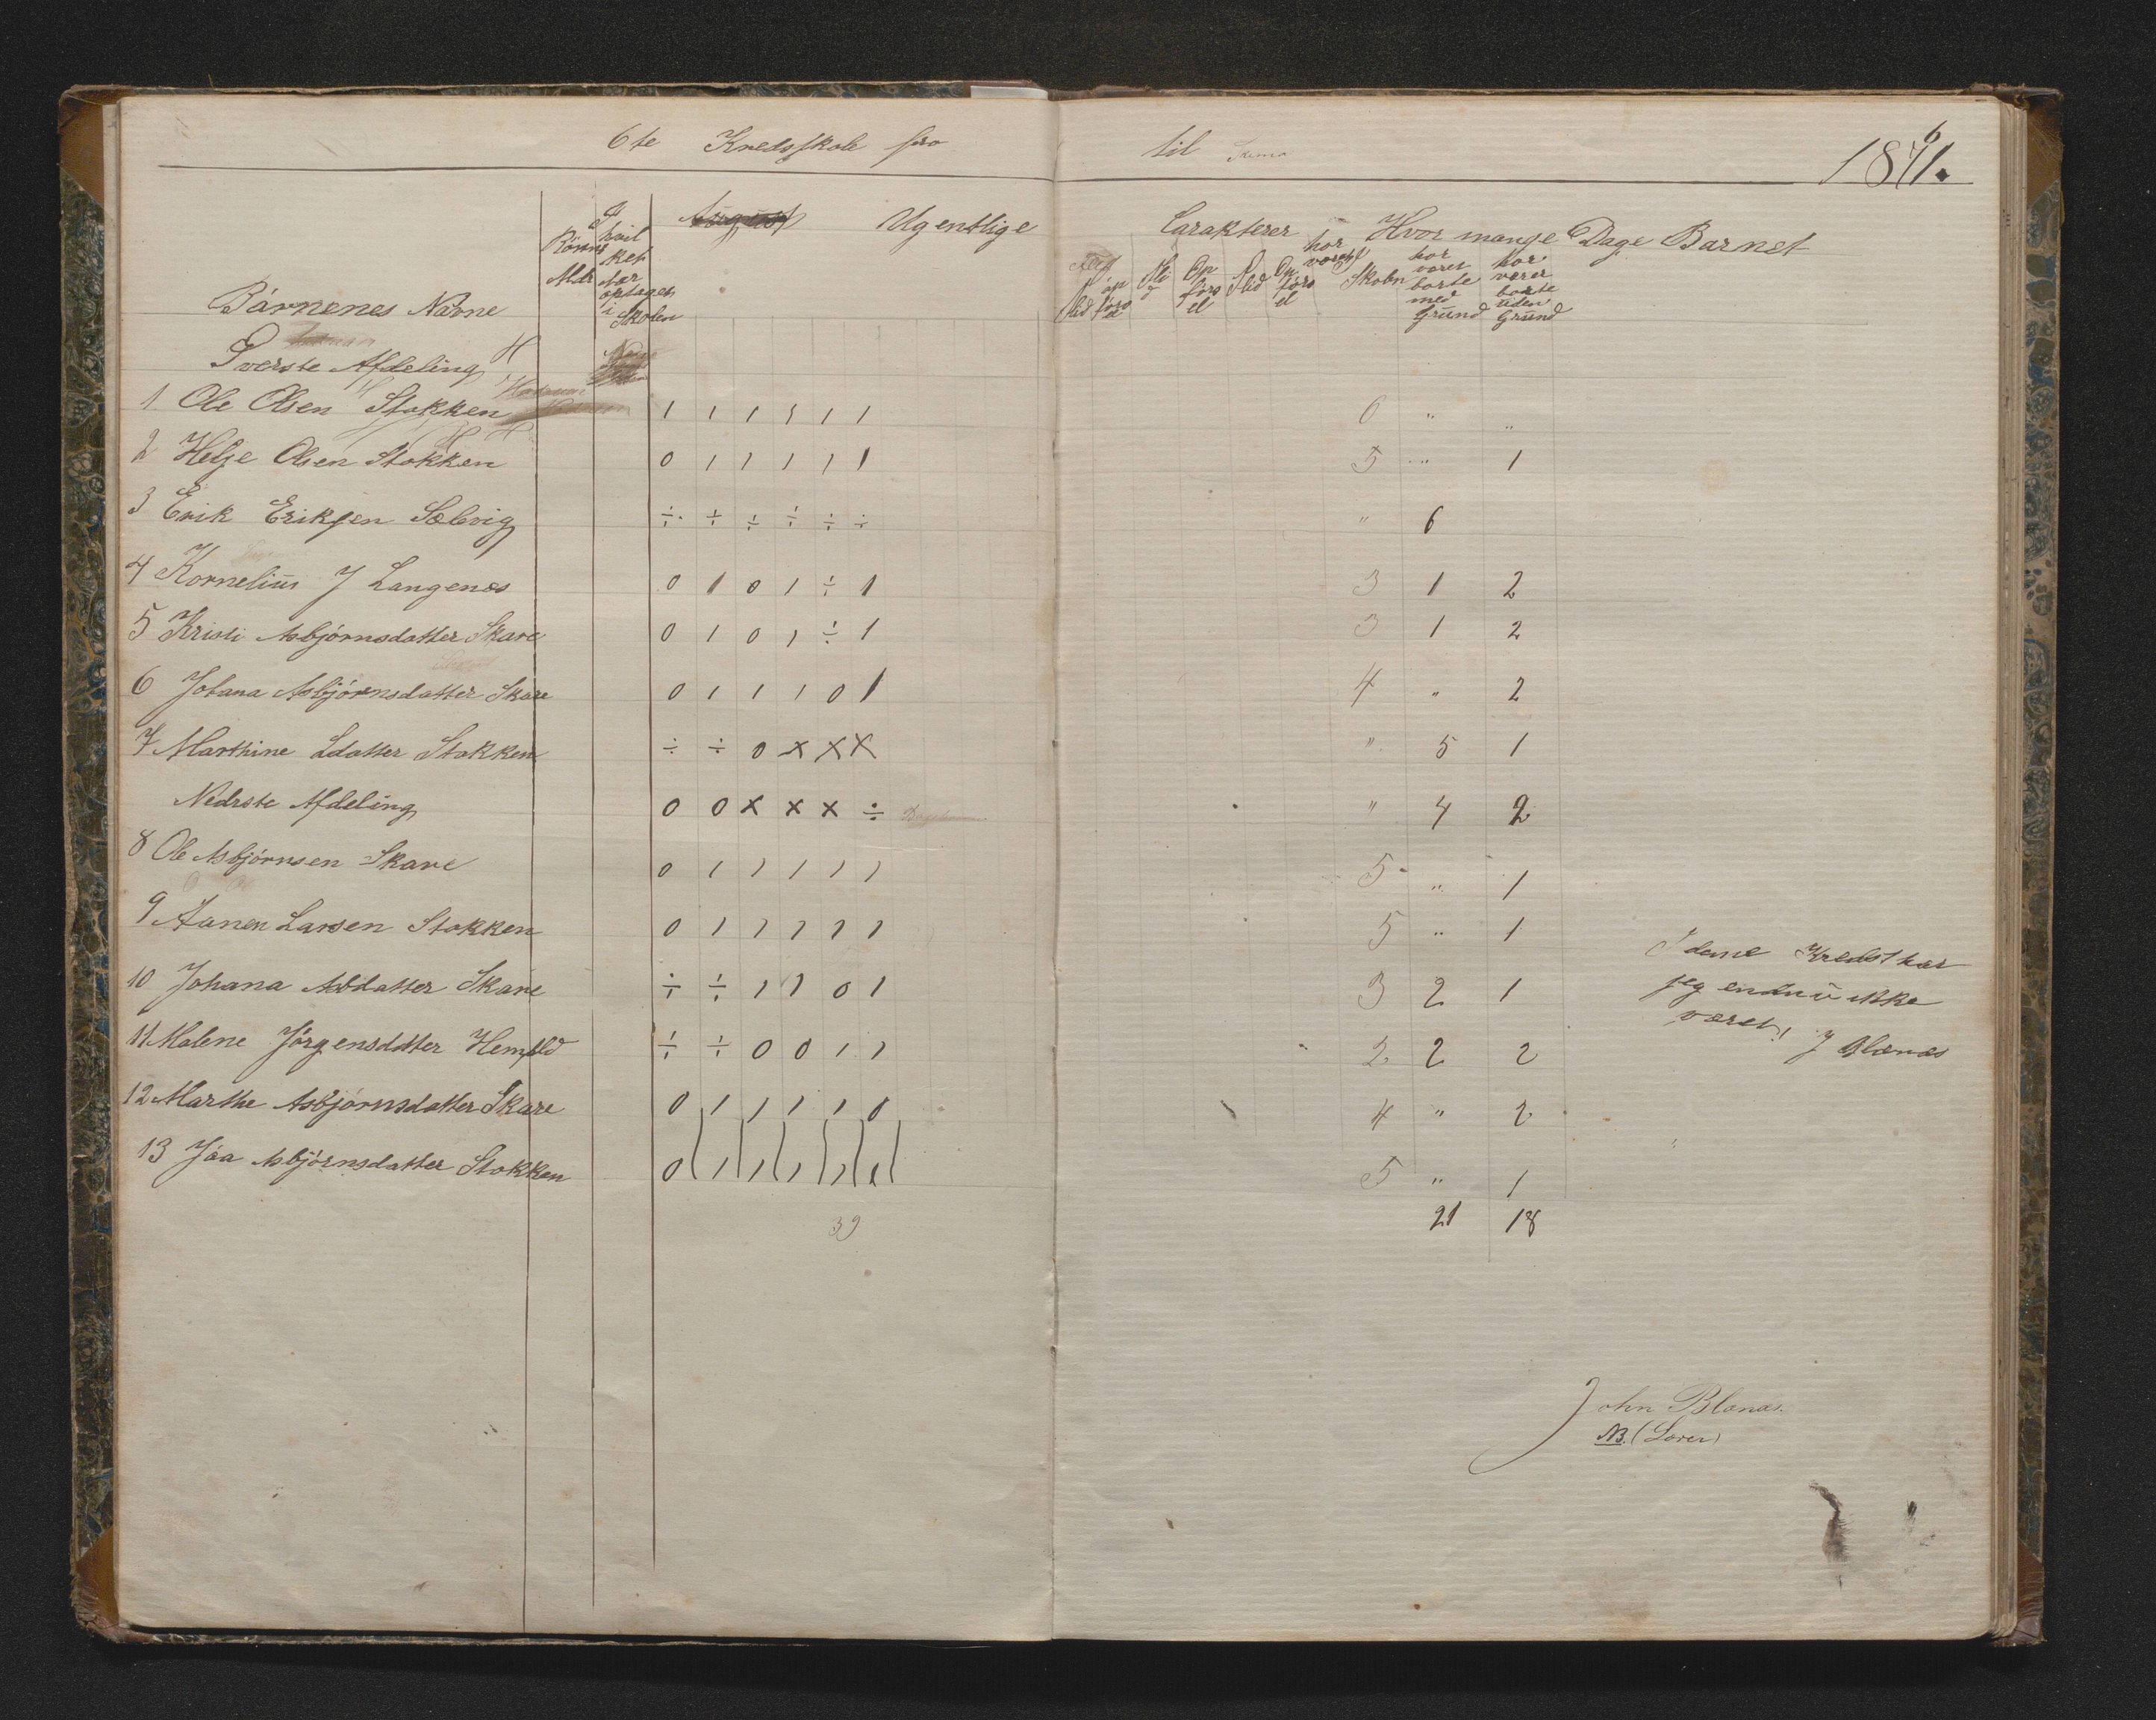 6te Kredsskole fra
til 1871.
6
August Ugentlige
Karakterer Hvor mange Dage Barnet
Børnenes Navne
I hvilket
Alder
optaget i Skolen
har været Skoln
har været borte med Grund
har været borte uden Grund
Øverste Afdeling
1 Ole Olsen Stokken 1 1 1 1 1 1 6 " "
2 Helge Olsen Stokken 0 1 1 1 1 1 5 " 1
3 Erik Eriksen Sælevig ÷ ÷ ÷ ÷ ÷ ÷ " 6
4 Kornelius J Langenæs 0 1 0 1 ÷ 1 3 1 2
5 Kristi Asbjørnsdatter Skare 0 1 0 1 ÷ 1 3 1 2
6 Johana Asbjørnsdatter Skare 0 1 1 1 0 1 4 " 2
7 Marthine Ldatter Stokken ÷ ÷ 0 x x x " 5 1
Nedrste Afdeling 0 0 x x x ÷ " 4 2
8 Ole Asbjørnsen Skare 0 1 1 1 1 1 5 " 1
9 Aanen Larsen Stokken 0 1 1 1 1 1 5 " 1
10 Johana Asbdatter Skare ÷ ÷ 1 1 0 1 3 2 1
11 Malene Jørgensdatter ÷ ÷ 0 0 1 1 2 2 2
12 Marthe Asbjørnsdatter Skare 0 1 1 1 1 0 4 " 2
13 Jáa Asbjørnsdatter Stokken 0 1 1 1 1 1 5 " 1
39
21 18
I dene Kreds har
jeg endnu ikke
været! J Blanæs
John Blanæs.
NB. (Lærer)